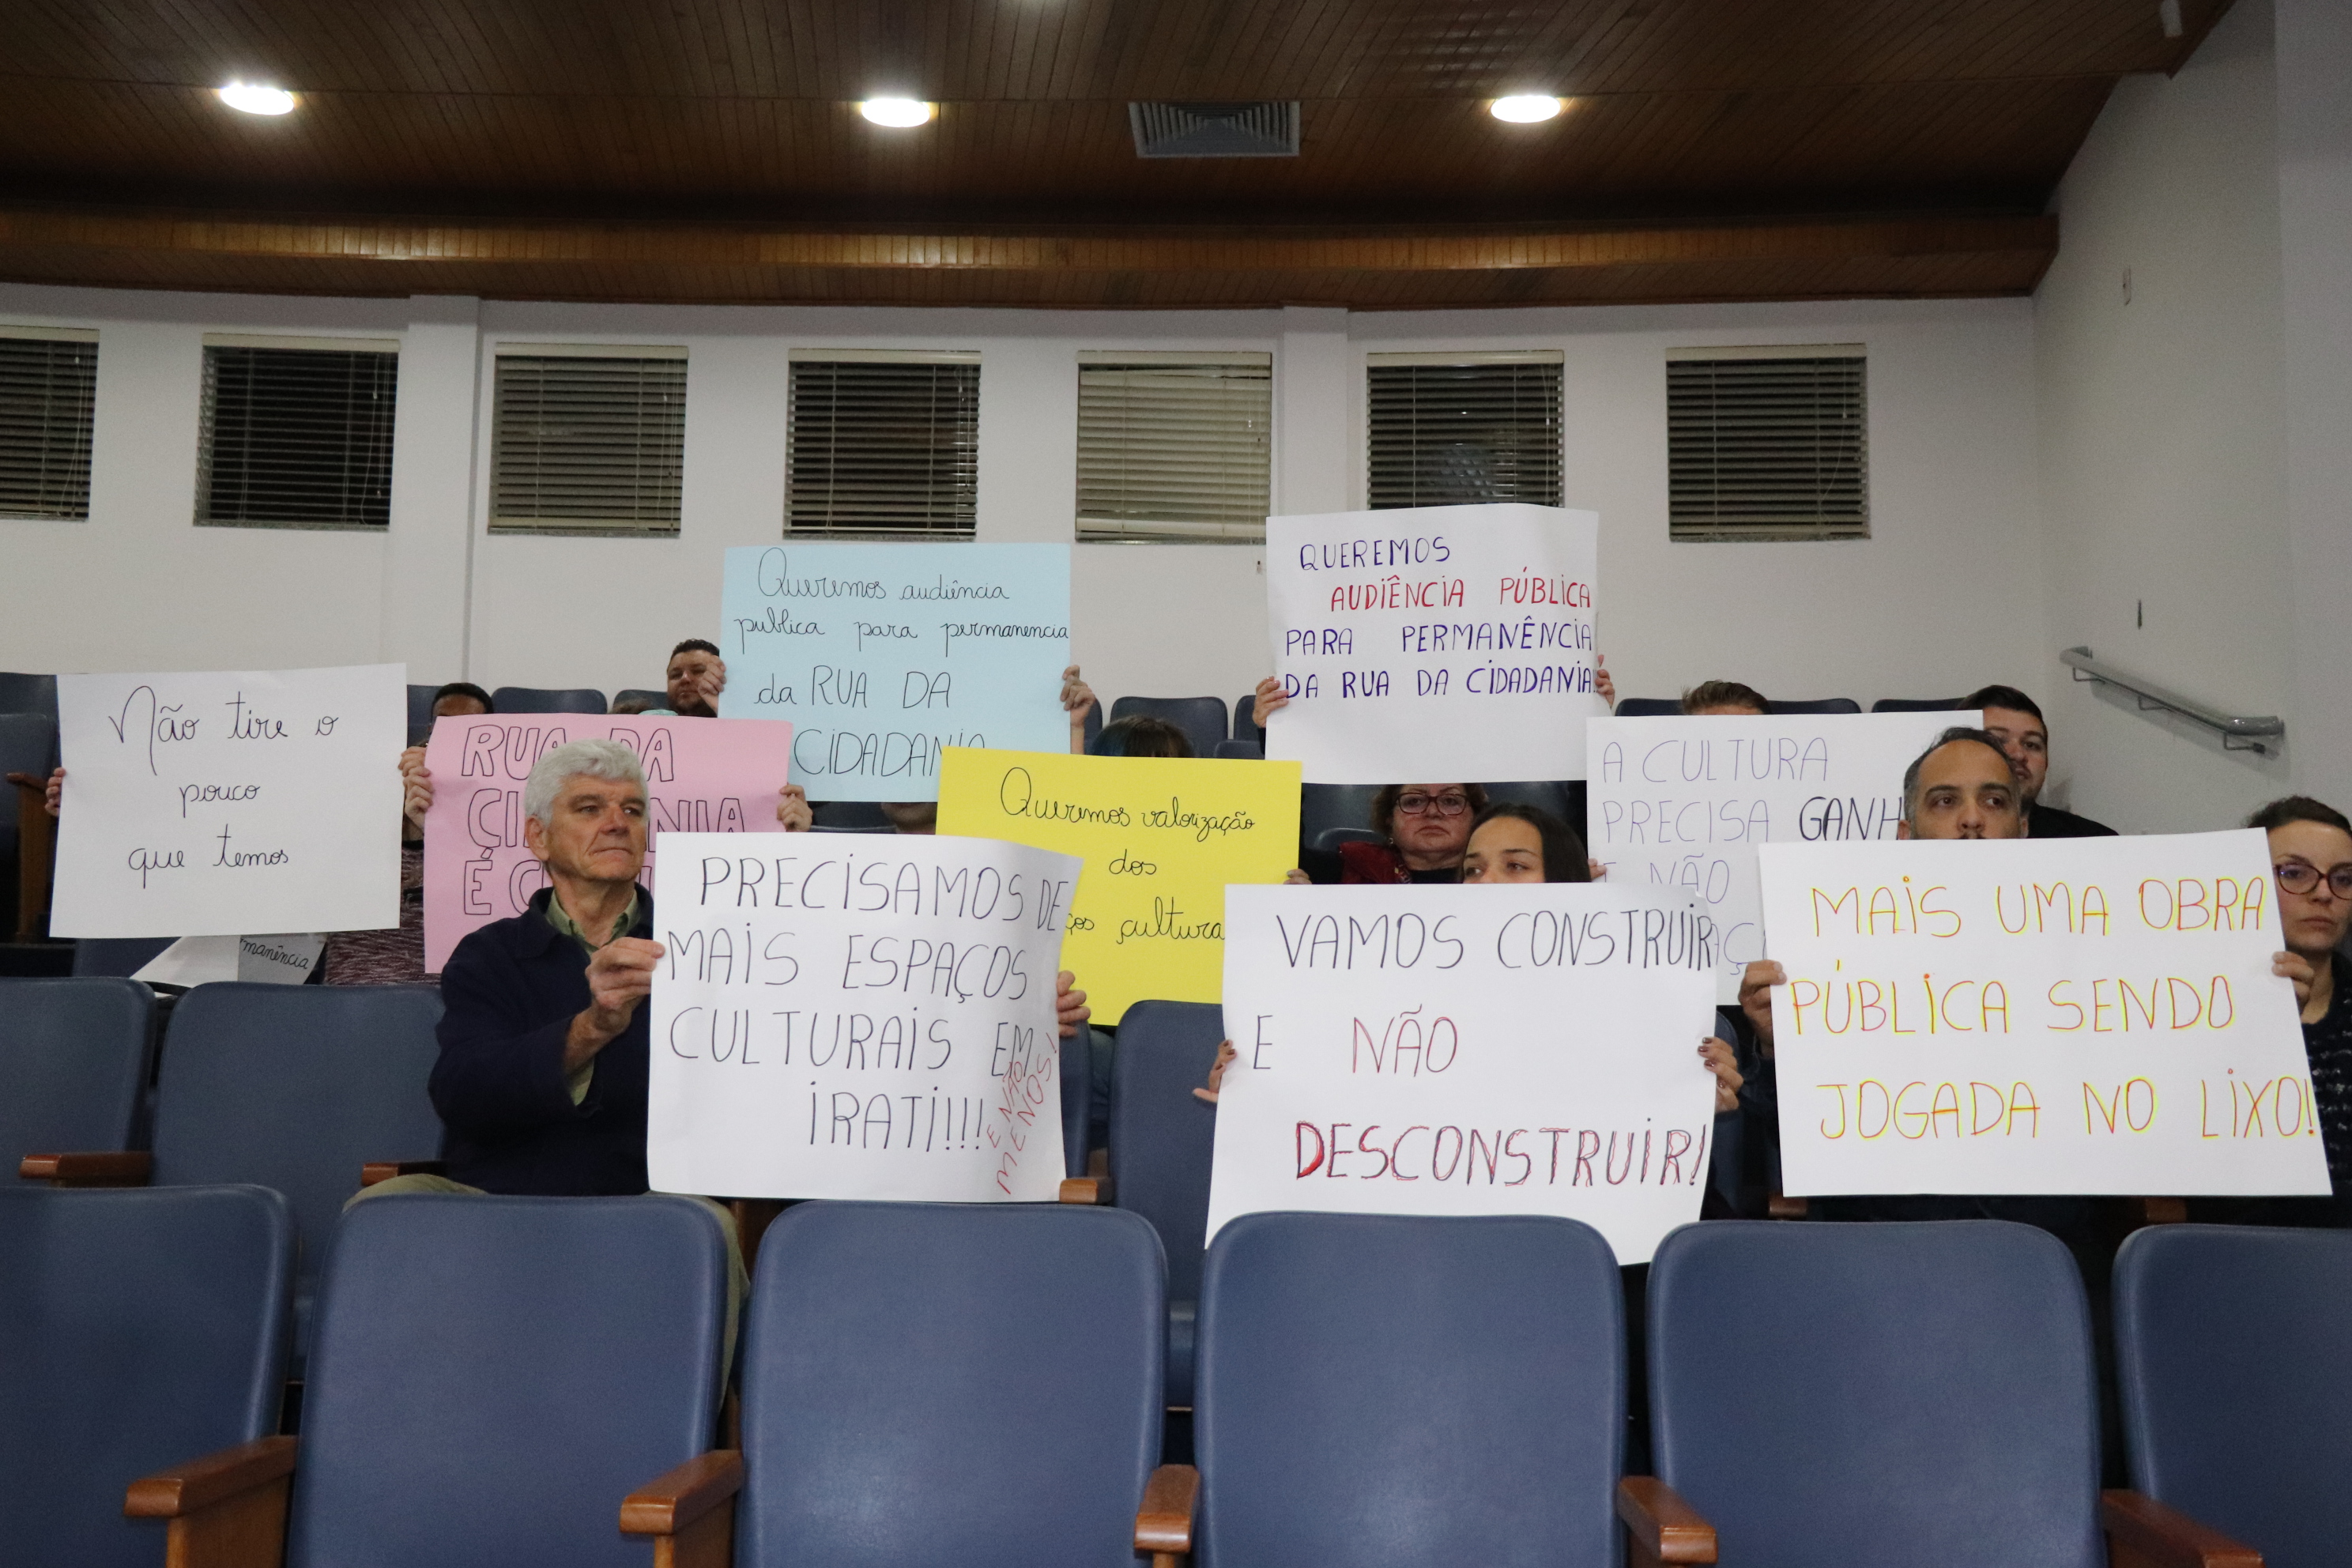 Não tire o
pouco
que temos
manência
RUA DA
É
Queremos audiência
publica para permanencia
da RUA DA
CIDADANIA
QUEREMOS
AUDIÊNCIA PÚBLICA
PARA PERMANÊNCIA
DA RUA DA CIDADANIA
Queremos valorização
dos
A CULTURA
PRECISA GANH
E NÃO
PRECISAMOS DE
MAIS ESPAÇOS
CULTURAIS EM
IRATI!!!
E NÃO
MENOS!
VAMOS CONSTRUIR
E NÃO
DESCONSTRUIR!
MAIS UMA OBRA
PÚBLICA SENDO
JOGADA NO LIXO!